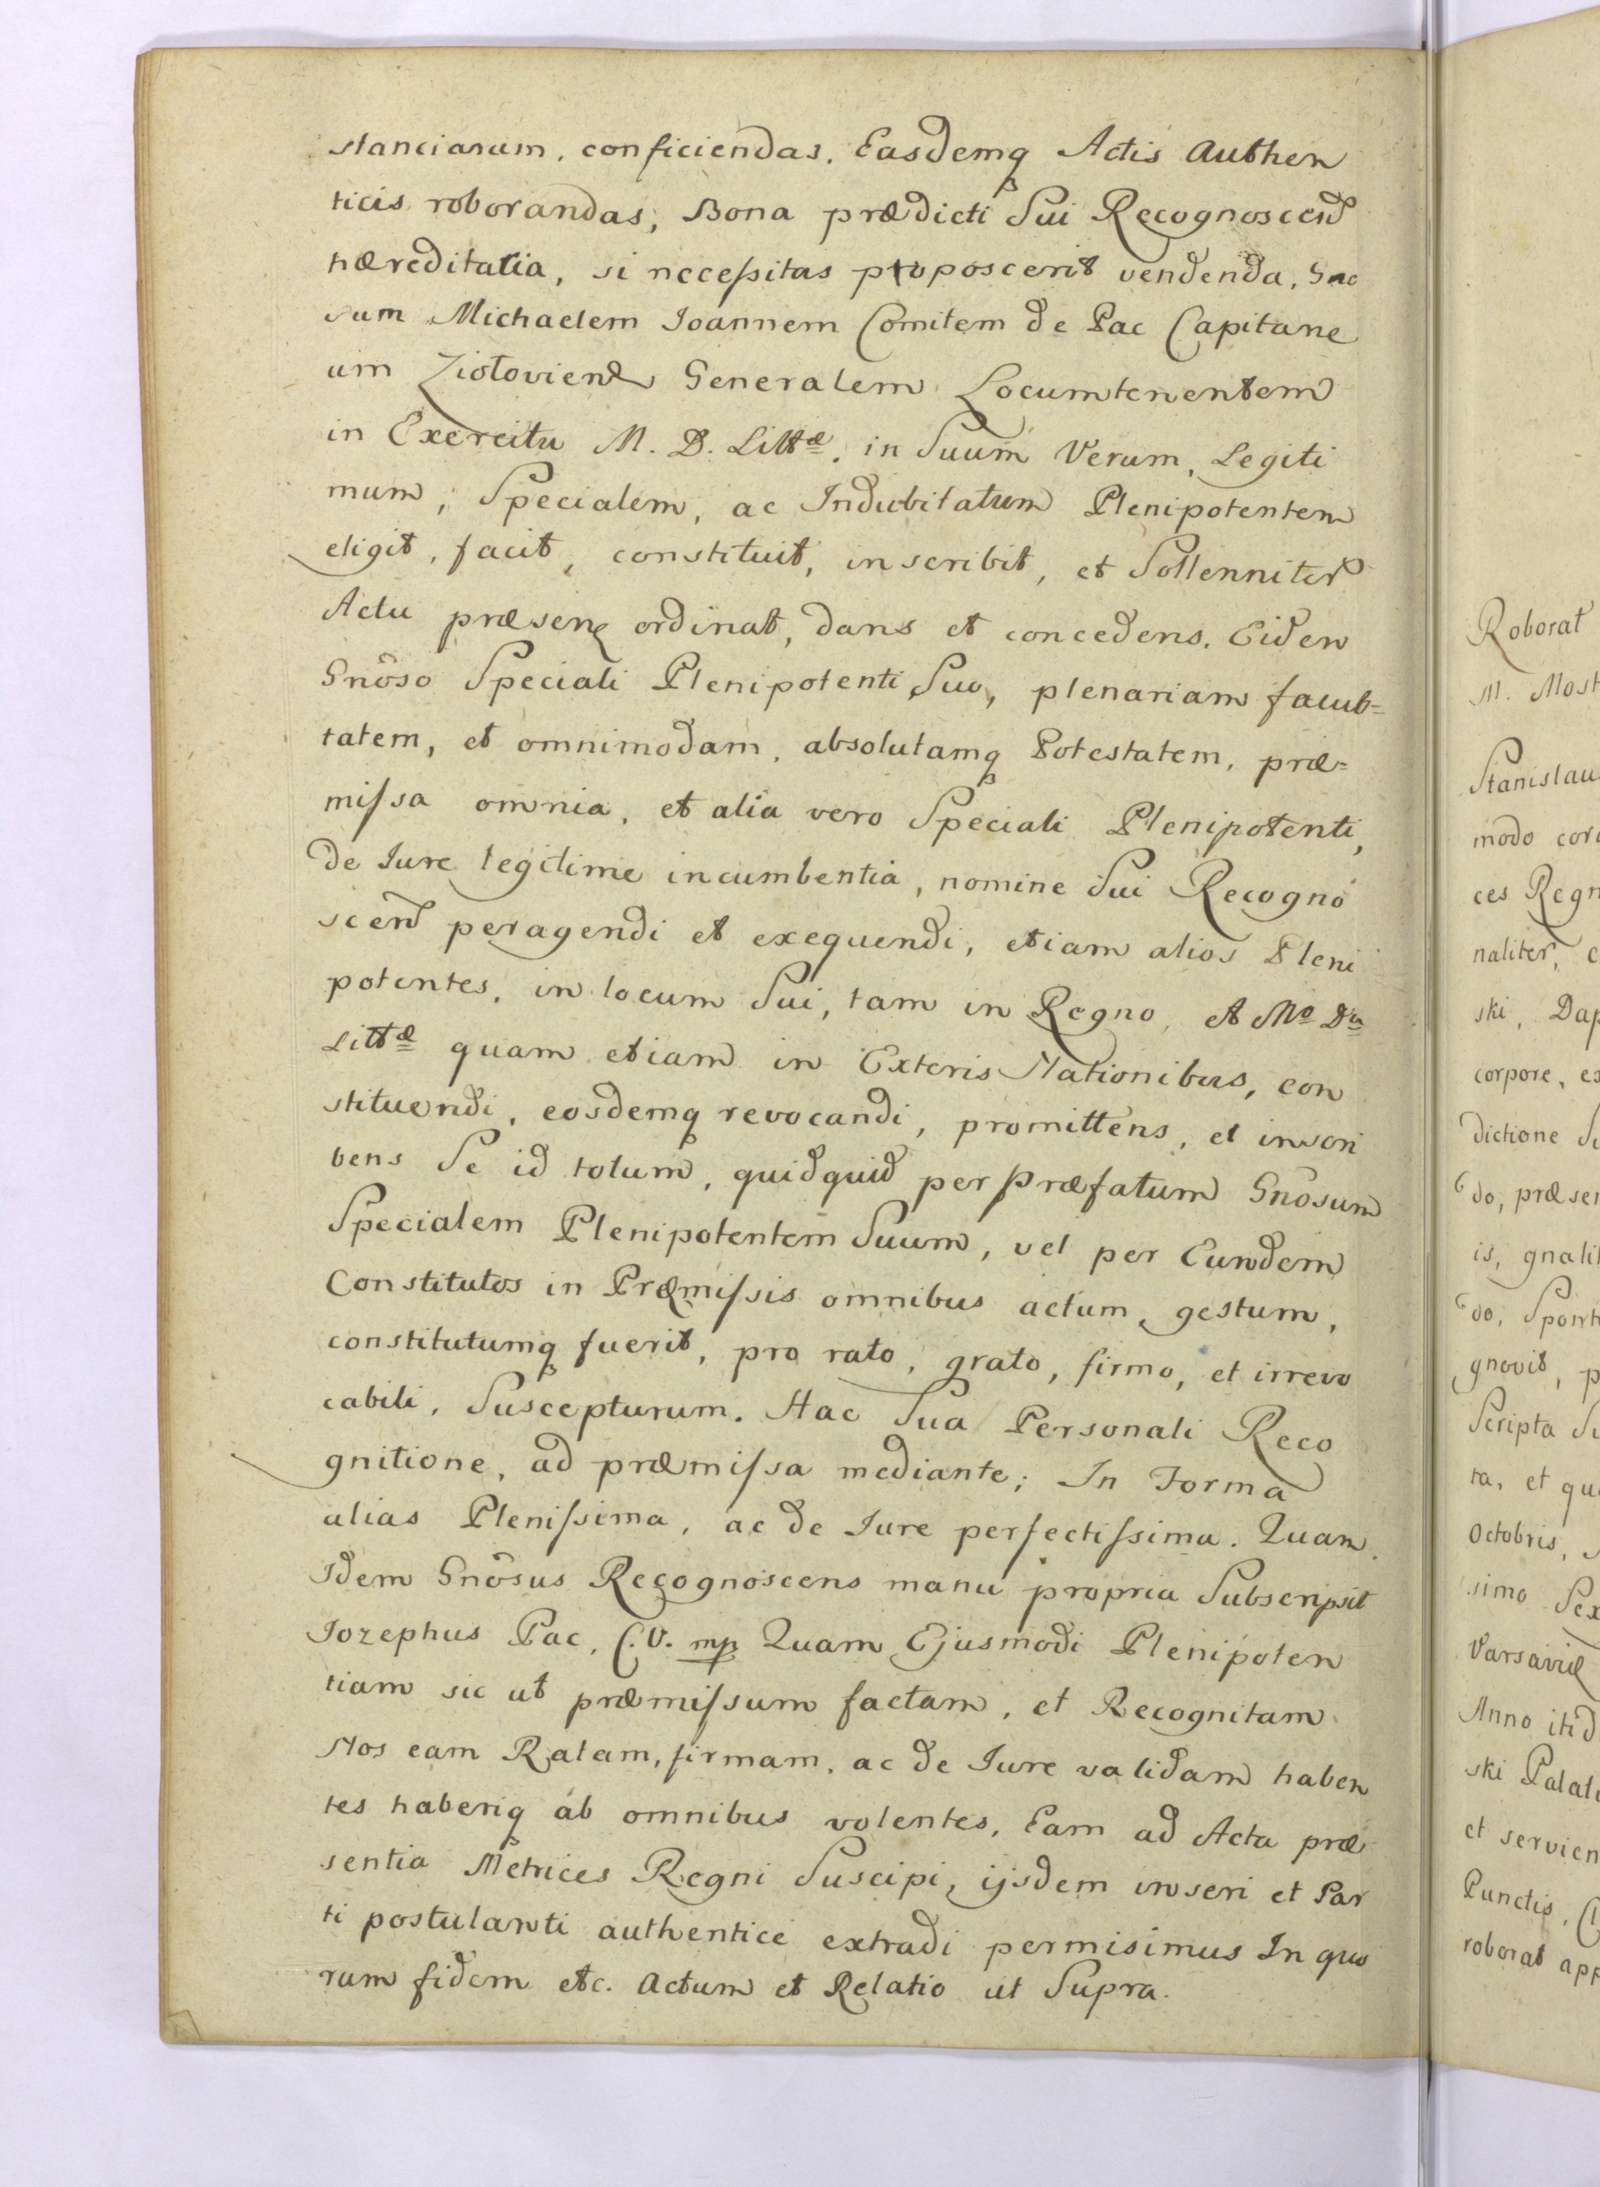 stanciarum, conficiendas, Easdemq Actis Authen
ticis roborandas, Bona prædicti Sui Recognoscend
hæreditaria, si necessitas proposcerit vendenda, Gno
sum Michaelem Joannem Comitem de Pac Capitane
um Ziołoviens Generalem Locumtenentem
in Exercitu M. D. Littæ, in Suum Verum, Legiti
mum, Specialem, ac Indubitatum Plenipotentem
eligit, facit, constituit, inscribit, et Sollenniter
Actu præsen ordinat, dans et concedens, Eidem
Gnôso Speciali Plenipotenti Suo, plenariam facul=
tatem, et omnimodam, absolutamq Potestatem, præ=
missa omnia, et alia vero Speciali Plenipotenti,
de Jure legitime incumbentia, nomine Sui Recogno
scend peragendi et exequendi, etiam alios Pleni
potentes, in locum Sui, tam in Regno, et Mo Du
Littæ quam etiam in Exteris Nationibus, con
stituendi, eosdemq revocandi, promittens, et inscri
bens Se id totum, quidquid per Præfatum Gnôsum
Specialem Plenipotentem Suum, vel per Eundem
Constitutos in Præmissis omnibus actum, gestum,
constitutumq fuerit, pro rato, grato, firmo, et irrevo
cabili, Suscepturum. Hac Sua Personali Reco
gnitione, ad præmissa mediante; In Forma
alias Plenissima, ac de Jure perfectissima. Quam
Idem Gnôsus Recognoscens manu propria Subscripsit
Jozephus Pac, C. V. mp. Quam Ejusmodi Plenipoten
tiam sic ut præmissum factam, et Recognitam
Nos eam Ratam, firmam, ac de Jure validam haben
tes haberiq ab omnibus volentes, Eam ad Acta præ
sentia Metrices Regni Suscipi, ijsdem inseri et Par
ti postulanti authentice extradi permisimus In quo
rum fidem etc. Actum et Relatio ut Supra.
Roborat
M. Most
Stanislau
modo cor
ces Regn
naliter,
ski, Dap
corpore, es
dictione Su
do, præsen
is, gnalit
do, Spont
gnovit, p
Scripta Su
ta, et qu
Octobris,
simo Sex
Varsaviæ
Anno itid
ski Palat
et servien
Punctis,
roborat app